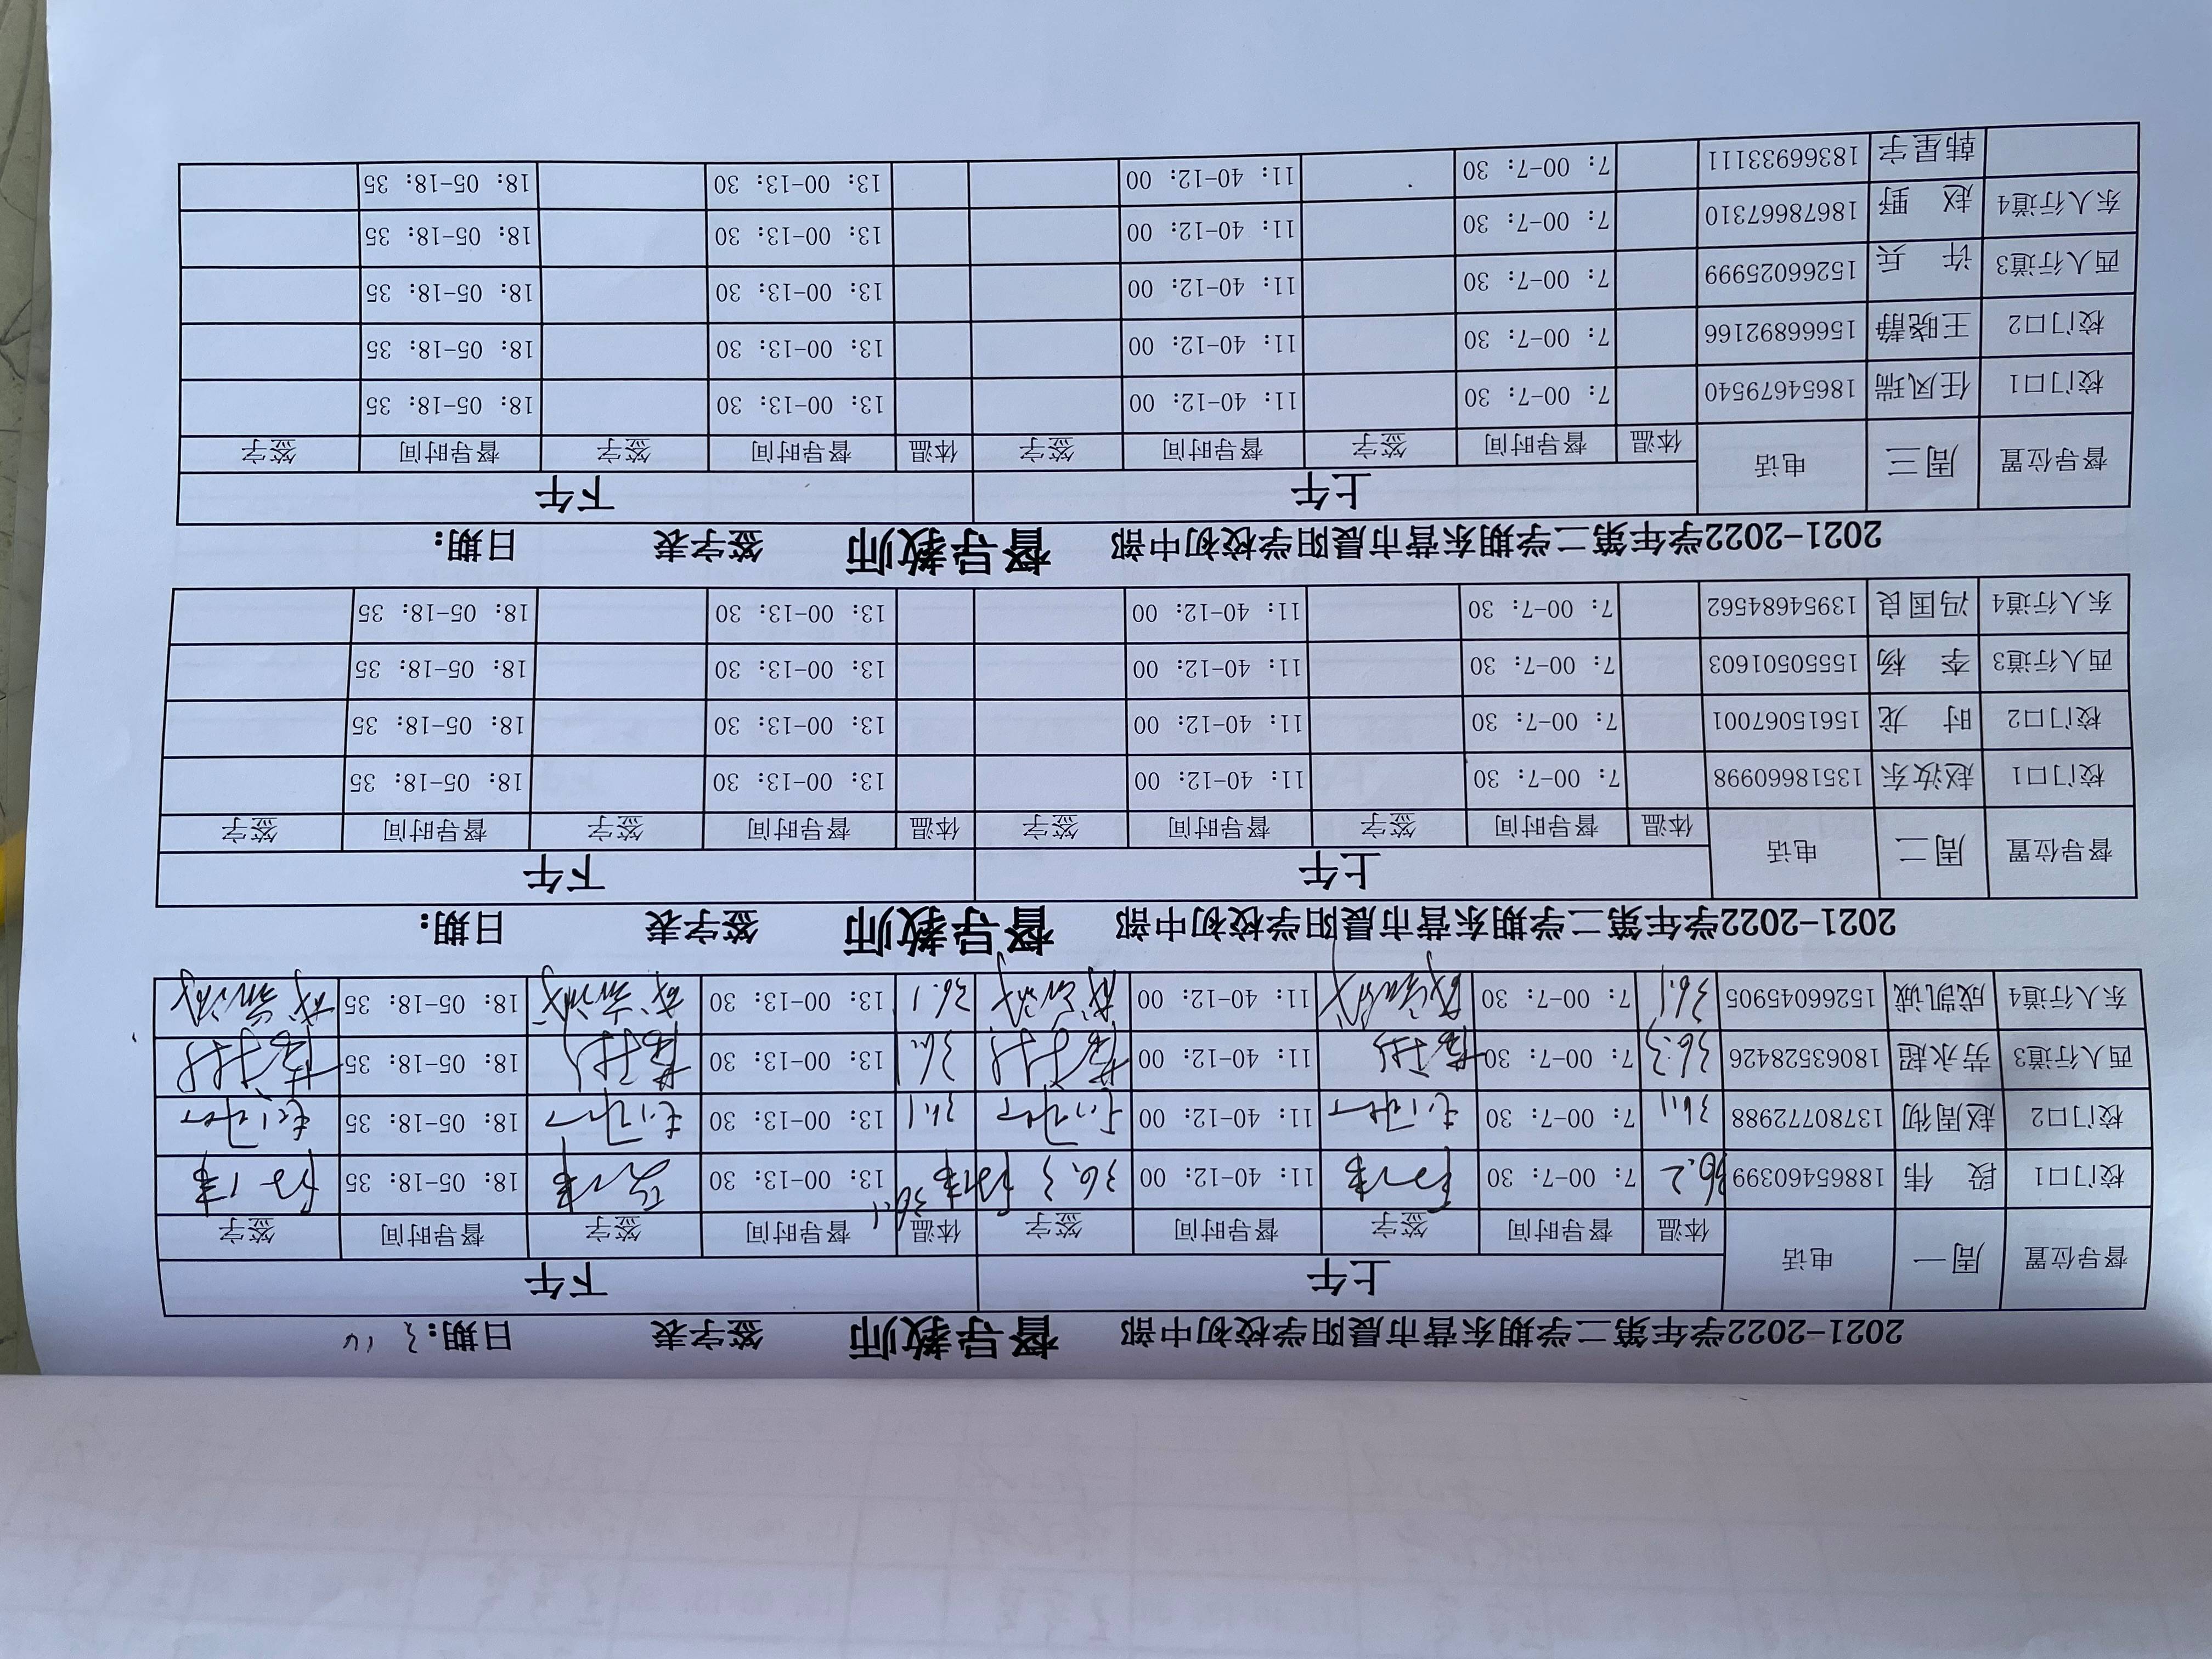 2021-2022学年第二学期东营市晨阳学校初中部 督导教师 签字表 日期:
督导位置 周一 电话 上午 下午
体温 督导时间 签字 督导时间 签字 体温 督导时间 签字 督导时间 签字
校门口1 段 伟 18865460399 36.2 7: 00-7: 30 11: 40-12: 00 36.3 36.1 13: 00-13: 30 18: 05-18: 35
校门口2 赵周彻 13780772988 7: 00-7: 30 11: 40-12: 00 13: 00-13: 30 18: 05-18: 35
西人行道3 劳永超 18063528426 36.3 7: 00-7: 30 11: 40-12: 00 13: 00-13: 30 18: 05-18: 35
东人行道4 成凯诚 15266045905 36.1 7: 00-7: 30 11: 40-12: 00 36.1 13: 00-13: 30 18: 05-18: 35
2021-2022学年第二学期东营市晨阳学校初中部 督导教师 签字表 日期:
督导位置 周二 电话 上午 下午
体温 督导时间 签字 督导时间 签字 体温 督导时间 签字 督导时间 签字
校门口1 赵汝东 13518660998 7: 00-7: 30 11: 40-12: 00 13: 00-13: 30 18: 05-18: 35
校门口2 时 龙 15615067001 7: 00-7: 30 11: 40-12: 00 13: 00-13: 30 18: 05-18: 35
西人行道3 李 杨 15550501603 7: 00-7: 30 11: 40-12: 00 13: 00-13: 30 18: 05-18: 35
东人行道4 冯国良 13954684562 7: 00-7: 30 11: 40-12: 00 13: 00-13: 30 18: 05-18: 35
2021-2022学年第二学期东营市晨阳学校初中部 督导教师 签字表 日期:
督导位置 周三 电话 上午 下午
体温 督导时间 签字 督导时间 签字 体温 督导时间 签字 督导时间 签字
校门口1 任凤瑞 18654679540 7: 00-7: 30 11: 40-12: 00 13: 00-13: 30 18: 05-18: 35
校门口2 王晓静 15666892166 7: 00-7: 30 11: 40-12: 00 13: 00-13: 30 18: 05-18: 35
西人行道3 许 兵 15266025999 7: 00-7: 30 11: 40-12: 00 13: 00-13: 30 18: 05-18: 35
东人行道4 赵 野 18678667310 7: 00-7: 30 11: 40-12: 00 13: 00-13: 30 18: 05-18: 35
韩星宇 18366933111 7: 00-7: 30 11: 40-12: 00 13: 00-13: 30 18: 05-18: 35